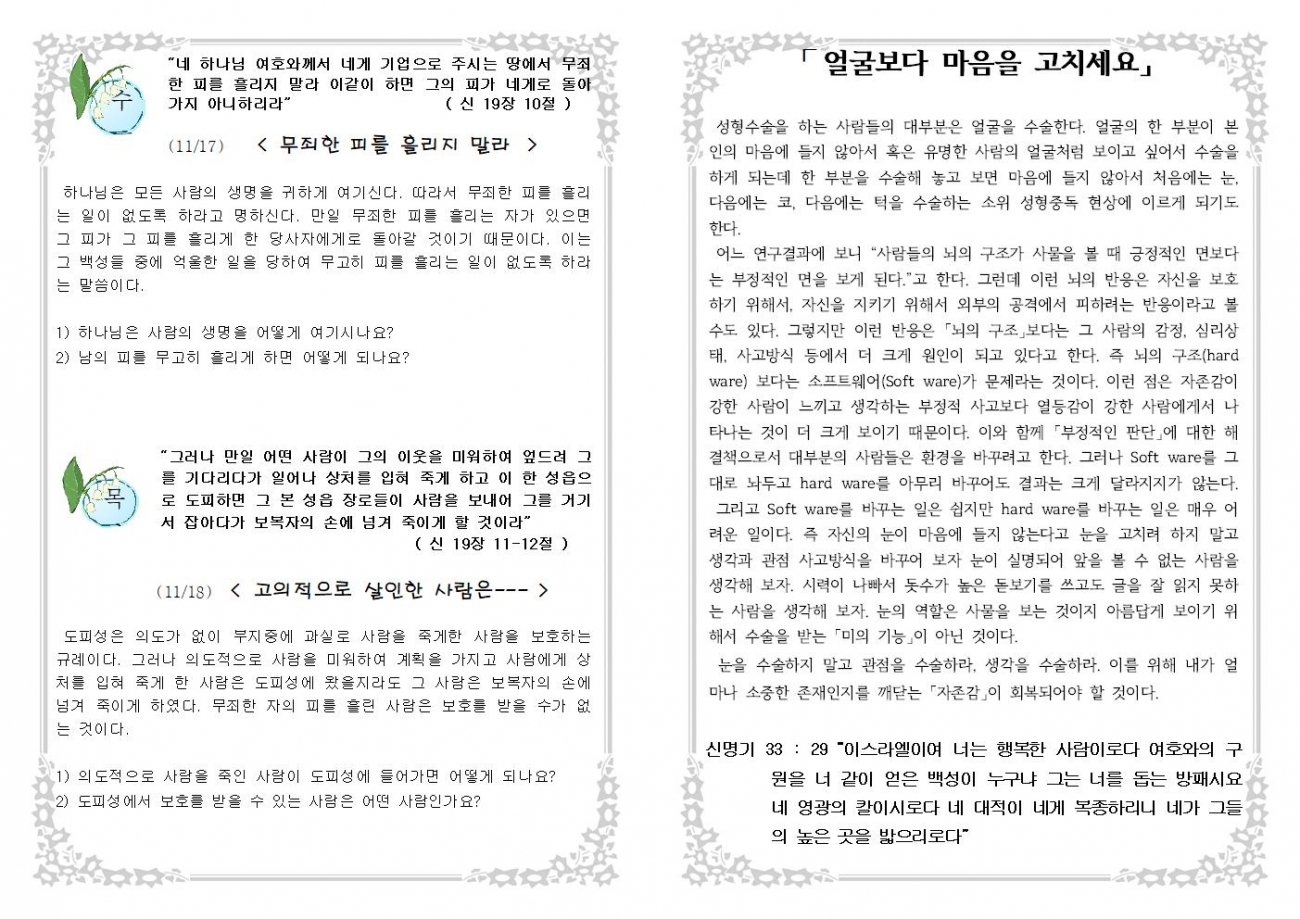 “네 하나님 여호와께서 네게 기업으로 주시는 땅에서 무죄
한 피를 흘리지 말라 이같이 하면 그의 피가 네게로 돌아
가지 아니하리라” ( 신 19장 10절 )
수
(11/17) < 무죄한 피를 흘리지 말라 >
하나님은 모든 사람의 생명을 귀하게 여기신다. 따라서 무죄한 피를 흘리
는 일이 없도록 하라고 명하신다. 만일 무죄한 피를 흘리는 자가 있으면
그 피가 그 피를 흘리게 한 당사자에게로 돌아갈 것이기 때문이다. 이는
그 백성들 중에 억울한 일을 당하여 무고히 피를 흘리는 일이 없도록 하라
는 말씀이다.
1) 하나님은 사람의 생명을 어떻게 여기시나요?
2) 남의 피를 무고히 흘리게 하면 어떻게 되나요?
“그러나 만일 어떤 사람이 그의 이웃을 미워하여 엎드려 그
를 기다리다가 일어나 상처를 입혀 죽게 하고 이 한 성읍으
로 도피하면 그 본 성읍 장로들이 사람을 보내어 그를 거기
서 잡아다가 보복자의 손에 넘겨 죽이게 할 것이라”
( 신 19장 11-12절 )
목
(11/18) < 고의적으로 살인한 사람은--- >
도피성은 의도가 없이 부지중에 과실로 사람을 죽게한 사람을 보호하는
규례이다. 그러나 의도적으로 사람을 미워하여 계획을 가지고 사람에게 상
처를 입혀 죽게 한 사람은 도피성에 왔을지라도 그 사람은 보복자의 손에
넘겨 죽이게 하였다. 무죄한 자의 피를 흘린 사람은 보호를 받을 수가 없
는 것이다.
1) 의도적으로 사람을 죽인 사람이 도피성에 들어가면 어떻게 되나요?
2) 도피성에서 보호를 받을 수 있는 사람은 어떤 사람인가요?
「 얼굴보다 마음을 고치세요」
성형수술을 하는 사람들의 대부분은 얼굴을 수술한다. 얼굴의 한 부분이 본
인의 마음에 들지 않아서 혹은 유명한 사람의 얼굴처럼 보이고 싶어서 수술을
하게 되는데 한 부분을 수술해 놓고 보면 마음에 들지 않아서 처음에는 눈,
다음에는 코, 다음에는 턱을 수술하는 소위 성형중독 현상에 이르게 되기도
한다.
어느 연구결과에 보니 “사람들의 뇌의 구조가 사물을 볼 때 긍정적인 면보다
는 부정적인 면을 보게 된다.”고 한다. 그런데 이런 뇌의 반응은 자신을 보호
하기 위해서, 자신을 지키기 위해서 외부의 공격에서 피하려는 반응이라고 볼
수도 있다. 그렇지만 이런 반응은 「뇌의 구조」보다는 그 사람의 감정, 심리상
태, 사고방식 등에서 더 크게 원인이 되고 있다고 한다. 즉 뇌의 구조(hard
ware) 보다는 소프트웨어(Soft ware)가 문제라는 것이다. 이런 점은 자존감이
강한 사람이 느끼고 생각하는 부정적 사고보다 열등감이 강한 사람에게서 나
타나는 것이 더 크게 보이기 때문이다. 이와 함께 「부정적인 판단」에 대한 해
결책으로서 대부분의 사람들은 환경을 바꾸려고 한다. 그러나 Soft ware를 그
대로 놔두고 hard ware를 아무리 바꾸어도 결과는 크게 달라지지가 않는다.
그리고 Soft ware를 바꾸는 일은 쉽지만 hard ware를 바꾸는 일은 매우 어
려운 일이다. 즉 자신의 눈이 마음에 들지 않는다고 눈을 고치려 하지 말고
생각과 관점 사고방식을 바꾸어 보자 눈이 실명되어 앞을 볼 수 없는 사람을
생각해 보자. 시력이 나빠서 돗수가 높은 돋보기를 쓰고도 글을 잘 읽지 못하
는 사람을 생각해 보자. 눈의 역할은 사물을 보는 것이지 아름답게 보이기 위
해서 수술을 받는 「미의 기능」이 아닌 것이다.
눈을 수술하지 말고 관점을 수술하라, 생각을 수술하라. 이를 위해 내가 얼
마나 소중한 존재인지를 깨닫는 「자존감」이 회복되어야 할 것이다.
신명기 33 : 29 “이스라엘이여 너는 행복한 사람이로다 여호와의 구
원을 너 같이 얻은 백성이 누구냐 그는 너를 돕는 방패시요
네 영광의 칼이시로다 네 대적이 네게 복종하리니 네가 그들
의 높은 곳을 밟으리로다”